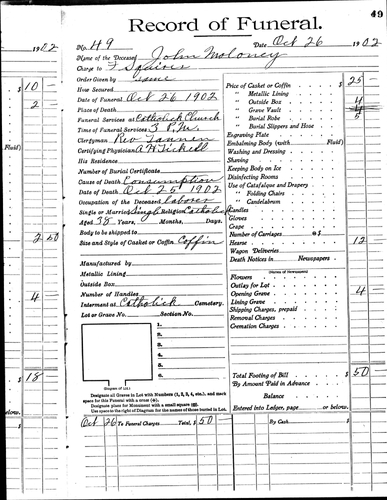 49
Record of Funeral.
1902
No. 49 Date Oct 26 1902
Name of the Deceased John Moloney
Charge to
Order Given by Same
How Secured
Date of Funeral Oct 26 1902
Place of Death
Funeral Services at Catholick Church
Time of Funeral Services 3 P.M.
Clergyman Rev
Certifying Physician
His Residence
Number of Burial Certificate
Cause of Death Consumption
Date of Death Oct 25 1902
Occupation of the Deceased Laborer
Single or Married Single Religion Catholick
Aged 38 Years, Months, Days.
Body to be shipped to
Size and Style of Casket or Coffin Coffin
Manufactured by
Metallic Lining
Outside Box
Number of Handles
Interment at Catholick Cemetery.
Lot or Grave No. Section No.
1.
2.
3.
4.
5.
6.
(Diagram of Lot.)
Designate all Graves in Lot with Numbers (1, 2, 3, 4, etc.), and mark
space for this Funeral with a cross (+).
Designate place for Monument with a small square (□).
Use space to the right of Diagram for the names of those buried in Lot.
Oct 26 To Funeral Charges Total, $ 50
Price of Casket or Coffin $ 25
" Metallic Lining
" Outside Box 4
" Grave Vault 4
" Burial Robe 5
" Burial Slippers and Hose
Engraving Plate
Embalming Body (with Fluid)
Washing and Dressing
Shaving
Keeping Body on Ice
Disinfecting Rooms
Use of Catafalque and Drapery
" Folding Chairs
" Candelabrum
Handles
Gloves
Crape
Number of Carriages @ $
Hearse 12
Wagon Deliveries
Death Notices in Newspapers
(Names of Newspapers)
Flowers
Outlay for Lot
Opening Grave 4
Lining Grave
Shipping Charges, prepaid
Removal Charges
Cremation Charges
Total Footing of Bill $ 50
By Amount Paid in Advance
Balance
Entered into Ledger, page or below.
By Cash $
$ 10
2
Fluid)
2 50
4
$ 18
below.